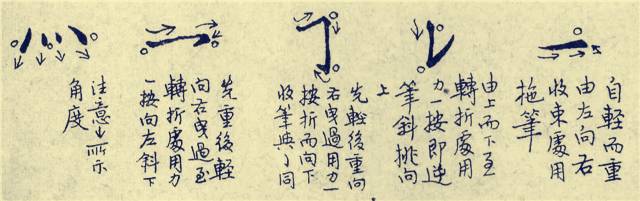 自輕而重
由左向右
收束處用
拖筆
由上而下至
轉折處用
力一按即逆
筆斜挑向
上
先輕後重向
右曳過用力一
按折而向下
收筆與亅同
先重後輕
向右曳過至
轉折處用力
一按向左斜下
注意↓所示
角度